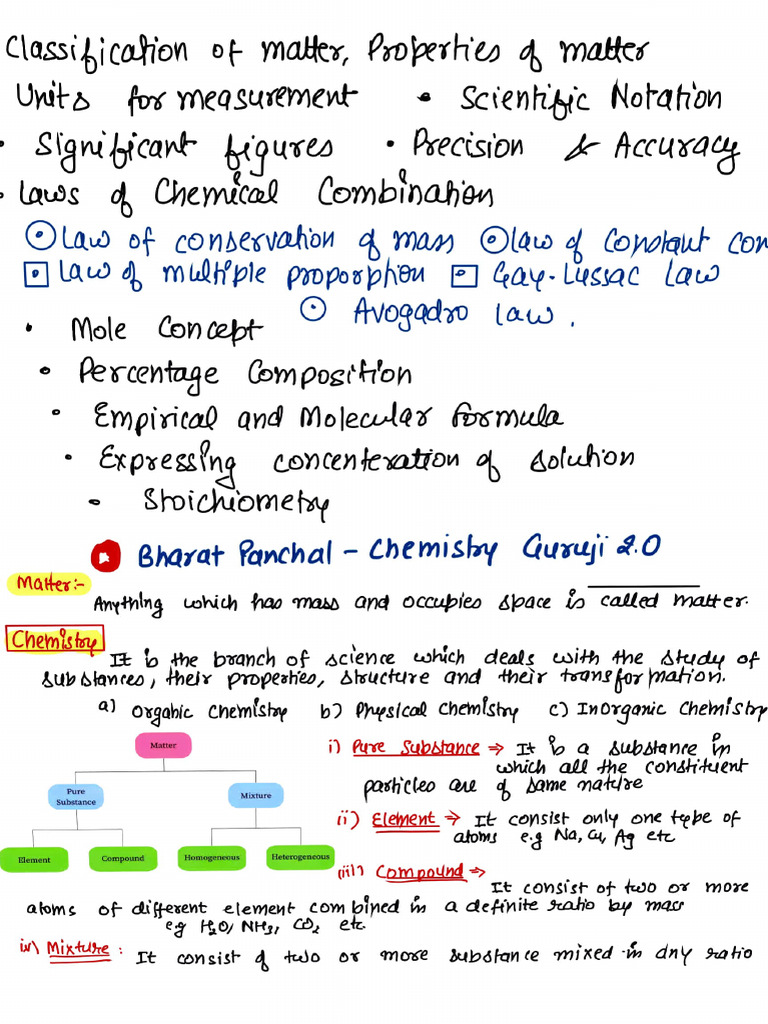 Classification of matter, Properties of matter
Units for measurement • Scientific Notation
• Significant figures • Precision & Accuracy
• Laws of Chemical Combination
⊙ Law of conservation of mass ⊙ law of Constant con
⊡ Law of multiple proporption ⊡ Gay-Lussac Law
⊙ Avogadro law.
• Mole Concept
• Percentage Composition
• Empirical and Molecular formula
• Expressing concenteration of solution
• Stoichiometry
Bharat Panchal - Chemistry Guruji 2.0
Matter:-
Anything which has mass and occupies space is called matter.
Chemistry
It is the branch of science which deals with the study of
substances, their properties, structure and their transformation.
a) Organic Chemistry b) Physical Chemistry c) Inorganic Chemistry
Matter
Pure Substance
Mixture
Element
Compound
Homogeneous
Heterogeneous
i) Pure Substance → It is a substance in
which all the constituent
particles are of same nature
ii) Element → It consist only one type of
atoms e.g Na, Cu, Ag etc
iii) Compound →
It consist of two or more
atoms of different element combined in a definite ratio by mass
eg H₂O, NH₃, CO₂ etc.
iv) Mixture : It consist of two or more substance mixed in any ratio